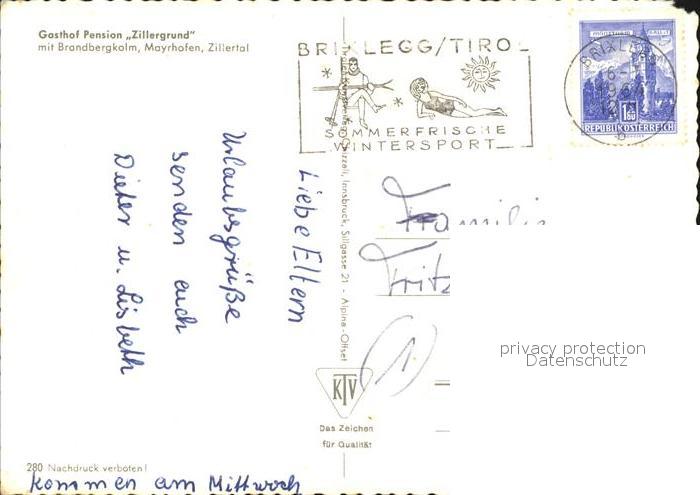 Gasthof Pension „Zillergrund"
mit Brandbergkolm, Mayrhofen, Zillertal
BRIXLEGG/TIROL
SOMMERFRISCHE
WINTERSPORT
BRIXLEGG
1.80
REPUBLIK ÖSTERREICH
Liebe Eltern
Urlaubsgrüße
senden euch
Dieter u. Lisbeth
kommen am Mittwoch
Familie
Fritz
(1)
privacy protection
Datenschutz
Innsbruck, Sillgasse 21 - Alpina-Offset
KTV
Das Zeichen
für Qualität
280 Nachdruck verboten!